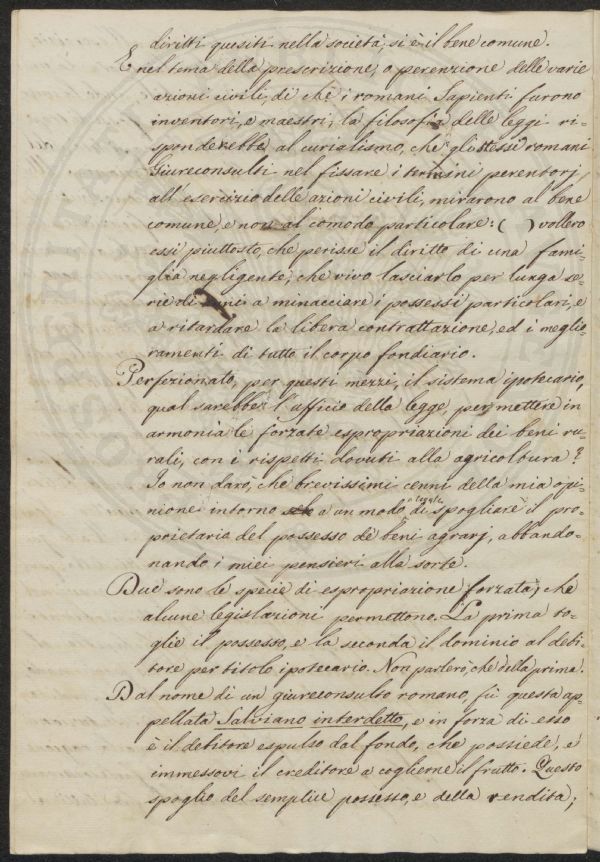 diritti quesiti nella società, si è il bene comune.
E nel tema della prescrizione, o perenzione delle varie
azioni civili, di che i romani Sapienti furono
inventori, e maestri, la filosofia delle leggi ri-
sponderebbe al curialismo, che gli stessi romani
Giureconsulti nel fissare i termini perentorj
all'esercizio delle azioni civili, mirarono al bene
comune, e non al comodo particolare: ( ) vollero
essi piuttosto, che perisse il diritto di una fami-
glia negligente, che vivo lasciarlo per lunga se-
rie di anni a minacciare i possessi particolari, e
a ritardare la libera contrattazione, ed i meglio-
ramenti di tutto il corpo fondiario.
Perfezionato, per questi mezzi, il sistema ipotecario,
qual sarebbe l'ufficio della legge, per mettere in
armonia le forzate espropriazioni dei beni ru-
rali, con i rispetti dovuti alla agricoltura?
Io non darò, che brevissimi cenni della mia opi-
nione intorno a un modo legale di spogliare il pro-
prietario del possesso de' beni agrarj, abbando-
nando i miei pensieri alla sorte.
Due sono le specie di espropriazione forzata, che
alcune legislazioni permettono. La prima to-
glie il possesso, e la seconda il dominio al debi-
tore per titolo ipotecario. Non parlerò, che della prima.
Dal nome di un giureconsulto romano, fù questa ap-
pellata Salviano interdetto, e in forza di esso
è il debitore espulso dal fondo, che possiede, e
immessovi il creditore a coglierne il frutto. Questo
spoglio del semplice possesso, e della rendita,